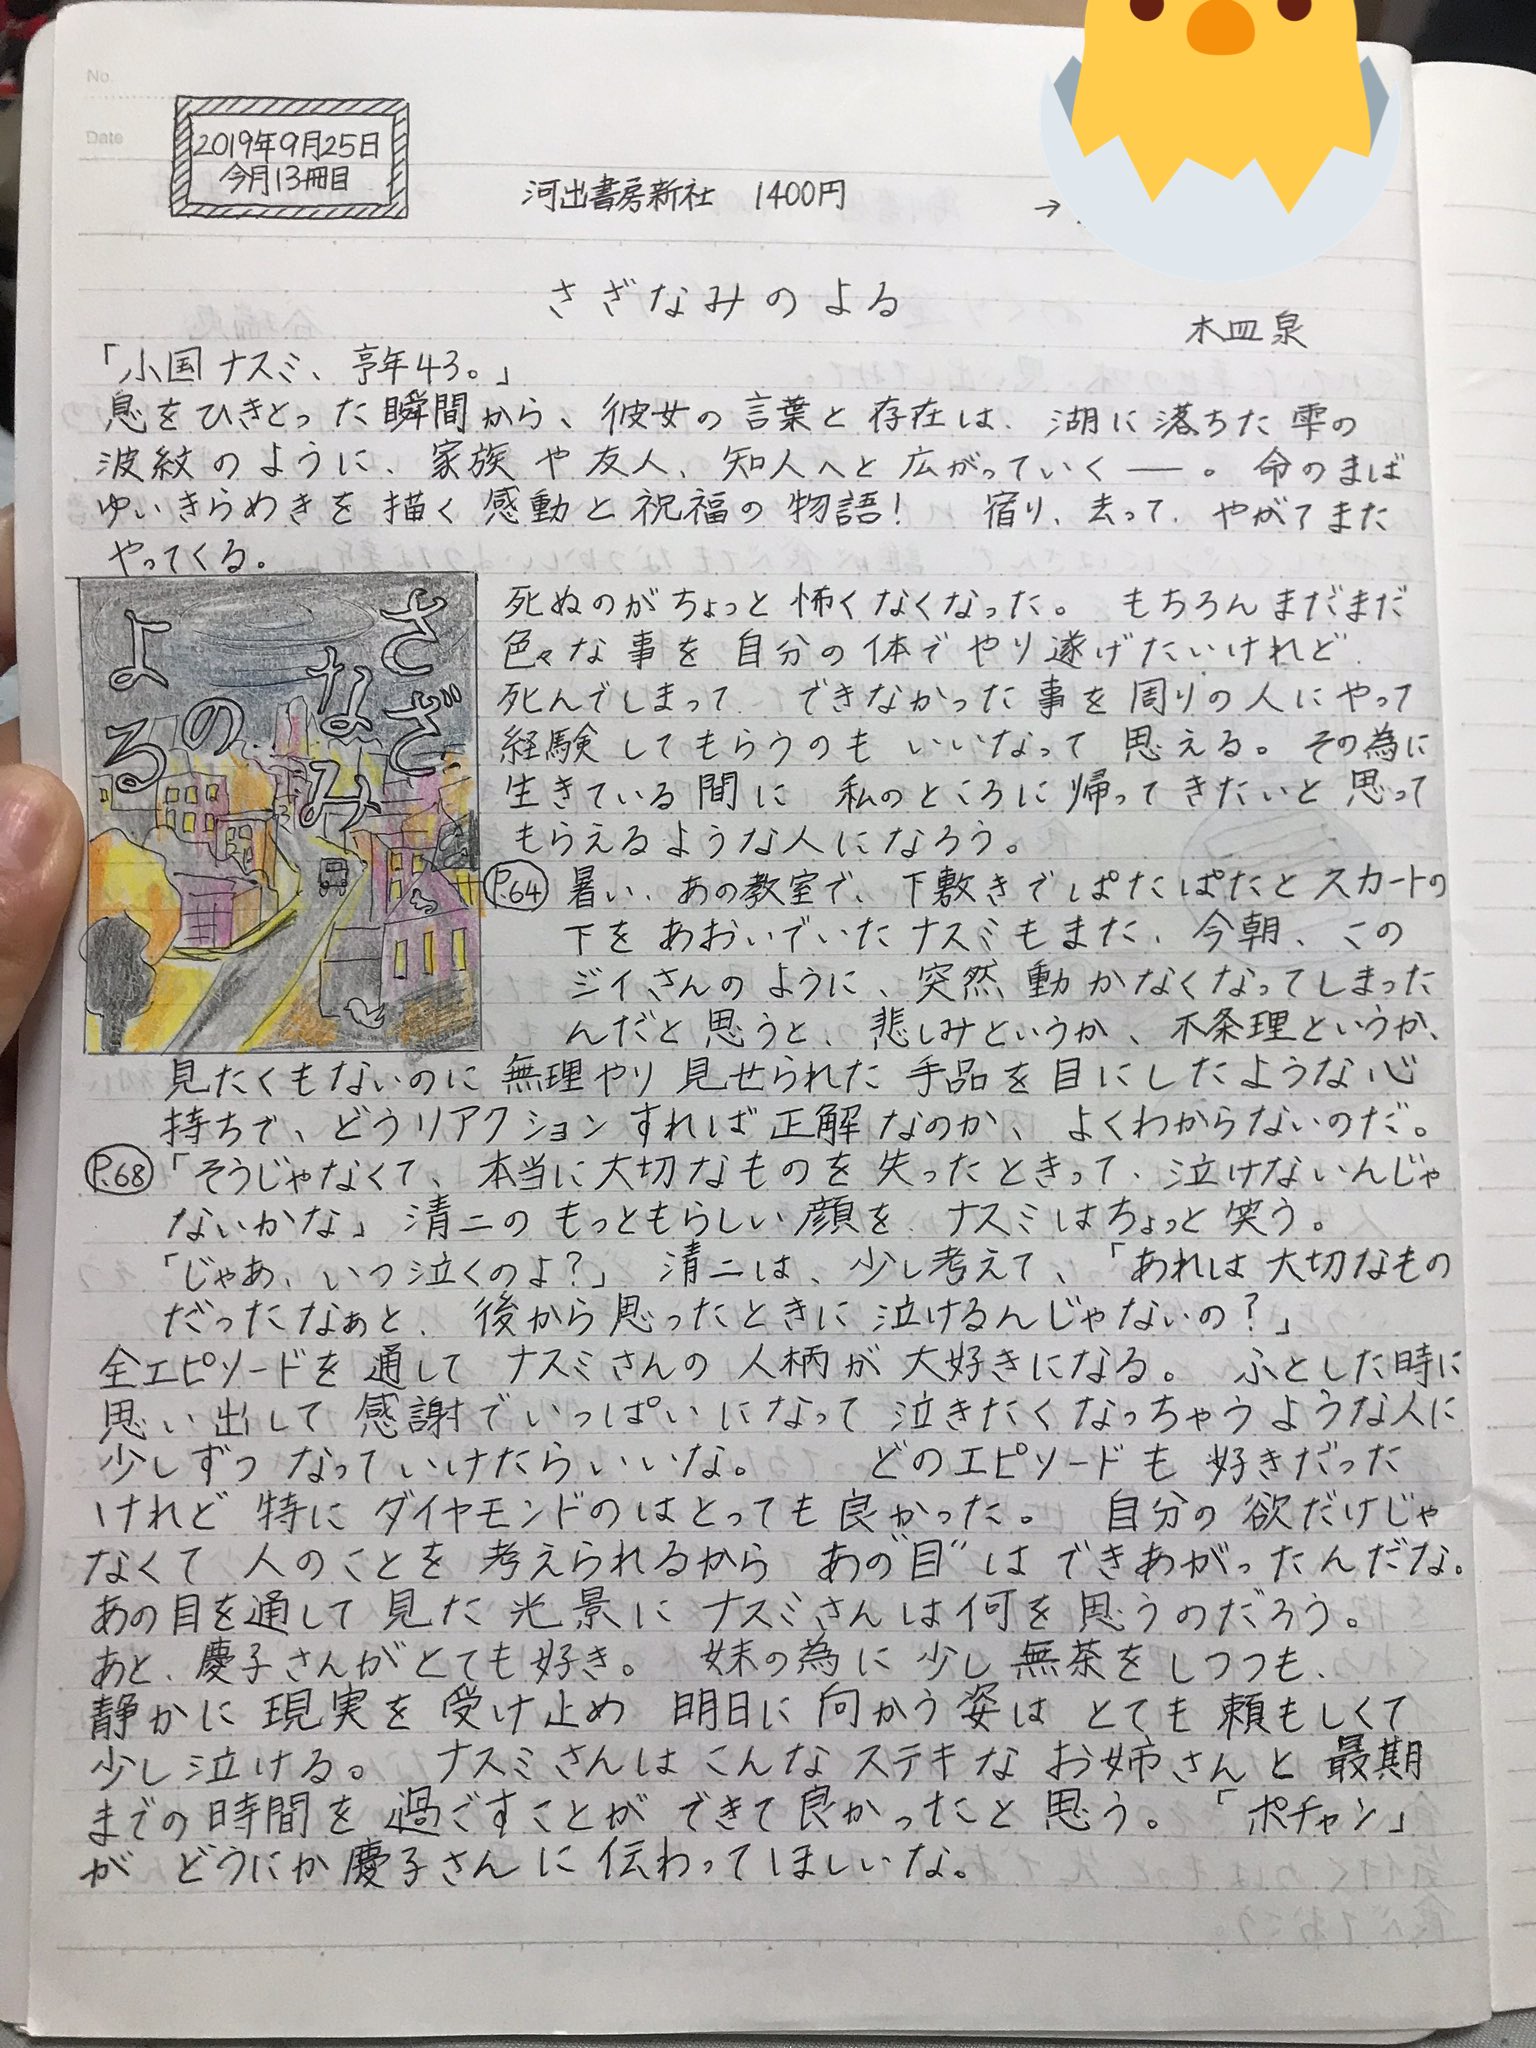 No.
Date
2019年9月25日
今月13冊目
河出書房新社 1400円
→
さざなみのよる
木皿泉
「小国ナスミ、享年43。」
息をひきとった瞬間から、彼女の言葉と存在は、湖に落ちた雫の
波紋のように、家族や友人、知人へと広がっていく――。命のまば
ゆいきらめきを描く感動と祝福の物語! 宿り、去って、やがてまた
やってくる。
さざなみのよる
死ぬのがちょっと怖くなくなった。 もちろんまだまだ
色々な事を自分の体でやり遂げたいけれど、
死んでしまって できなかった事を周りの人にやって
経験してもらうのも いいなって思える。その為に
生きている間に 私のところに帰ってきたいと思って
もらえるような人になろう。
P.64 暑い、あの教室で、下敷きでぱたぱたとスカートの
下をあおいでいたナスミもまた、今朝、この
ジイさんのように、突然動かなくなってしまった
んだと思うと、悲しみというか、不条理というか、
見たくもないのに無理やり見せられた手品を目にしたような心
持ちで、どうリアクションすれば正解なのか、よくわからないのだ。
P.68 「そうじゃなくて、本当に大切なものを失ったときって、泣けないんじゃ
ないかな」 清二のもっともらしい顔を、ナスミはちょっと笑う。
「じゃあ、いつ泣くのよ?」 清二は、少し考えて、「あれは大切なもの
だったなぁと、後から思ったときに泣けるんじゃないの?」
全エピソードを通してナスミさんの人柄が大好きになる。 ふとした時に
思い出して感謝でいっぱいになって泣きたくなっちゃうような人に
少しずつなっていけたらいいな。 どのエピソードも好きだった
けれど特にダイヤモンドのはとっても良かった。 自分の欲だけじゃ
なくて人のことを考えられるから あの"目"はできあがったんだな。
あの目を通して見た光景にナスミさんは何を思うのだろう。
あと、慶子さんがとても好き。 妹の為に少し無茶をしつつも、
静かに現実を受け止め 明日に向かう姿はとても頼もしくて
少し泣ける。 ナスミさんはこんなステキなお姉さんと最期
までの時間を過ごすことができて良かったと思う。「ポチャン」
が どうにか慶子さんに伝わってほしいな。